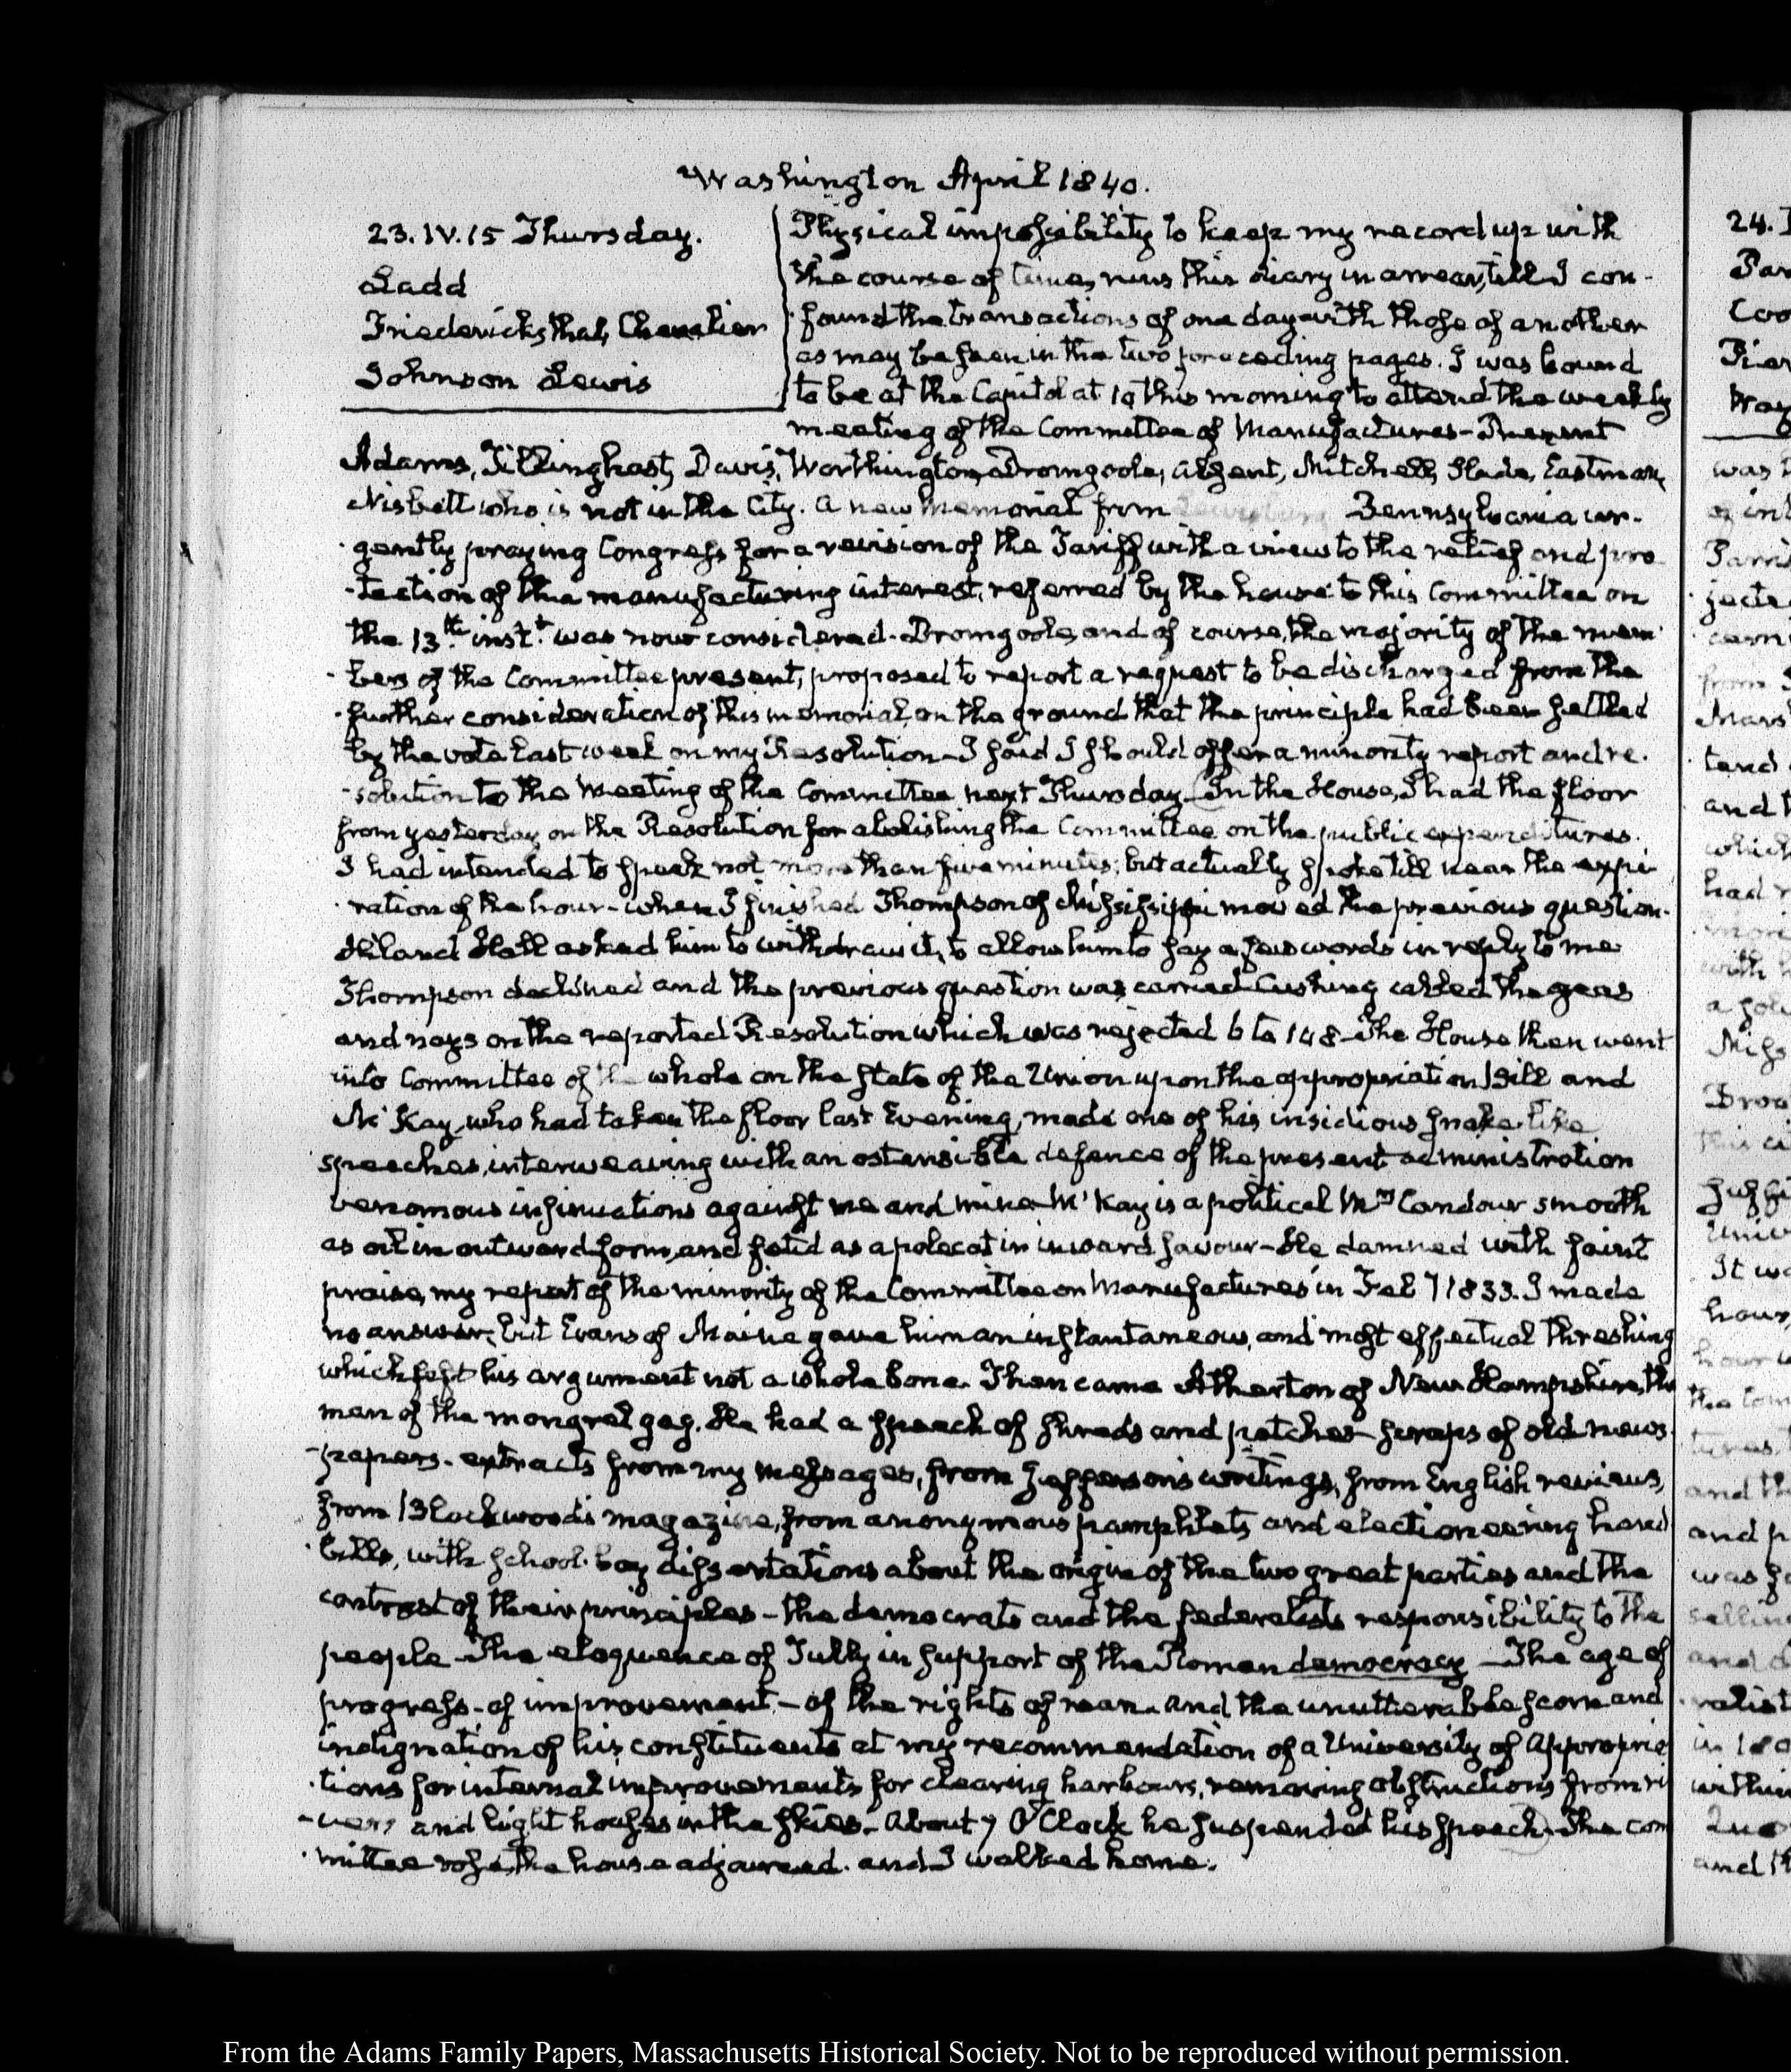 Washington April 1840.
23. IV. 15 Thursday.
Ladd
Friedericksthal, Chevalier
Johnson Lewis
Physical impossibility to keep my record up with
the course of time, runs this diary in arrear, till I con-
-found the transactions of one day with those of another
as may be seen in the two preceding pages. I was bound
to be at the Capitol at 10 this morning to attend the weekly
meeting of the Committee of Manufactures - Present
Adams, Tillinghast, Davis, Worthington, Dromgoole, absent, Mitchell, Slade, Eastman,
Nisbett who is not in the City. A new Memorial from Pennsylvania ur-
-gently praying Congress for a revision of the Tariff with a view to the relief and pro
-tection of the manufacturing interest, referred by the house to this Committee on
the 13th. instt. was now considered. Dromgoole, and of course, the majority of the mem
-bers of the Committee present, proposed to report a request to be discharged from the
further consideration of this memorial, on the ground that the principle had been settled
by the vote last week on my Resolution - I said I should offer a minority report and re-
-solution to the Meeting of the Committee next Thursday - In the House, I had the floor
from yesterday, on the Resolution for abolishing the Committee on the public expenditures.
I had intended to speak not more than five minutes; but actually spoke till near the expi
-ration of the hour - when I finished Thompson of Mississippi moved the previous question.
Hiland Hall asked him to withdraw it, to allow him to say a few words in reply to me
Thompson declined and the previous question was carried. Cushing called the yeas
and nays on the reported Resolution which was rejected 6 to 148 - The House then went
into Committee of the whole on the state of the Union upon the appropriation Bill and
Mc Kay, who had taken the floor last Evening, made one of his insidious snake-like
speeches, interweaving with an ostensible defence of the present administration
venomous insinuations against me and mine - Mc Kay is a political Mrs Candour smooth
as oil in outward form, and fetid as a polecat in inward savour - He damned with faint
praise, my report of the minority of the Committee on Manufactures in Feby 1833. I made
no answer, but Evans of Maine gave him an instantaneous, and most effectual threshing
which left his argument not a whole bone. Then came Atherton of New Hampshire, the
man of the mongrel gag. He had a speech of shreds and patches - scraps of old news-
-papers - extracts from my messages, from Jefferson's writings, from English reviews,
from Blackwood's magazine, from anonymous pamphlets and electioneering hand
-bills, with school-boy dissertations about the origin of the two great parties and the
contrast of their principles - the democrats and the federalists responsibility to the
people - The eloquence of Tully in support of the Roman democracy - The age of
progress - of improvement - of the rights of man - and the unutterable scorn and
indignation of his constituents at my recommendation of a University of Appropria
-tions for internal improvements for clearing harbours, removing obstructions from ri
-vers and light houses in the skies - About 7 O'Clock he suspended his speech - The com
-mittee rose, the house adjourned - and I walked home.
From the Adams Family Papers, Massachusetts Historical Society. Not to be reproduced without permission.